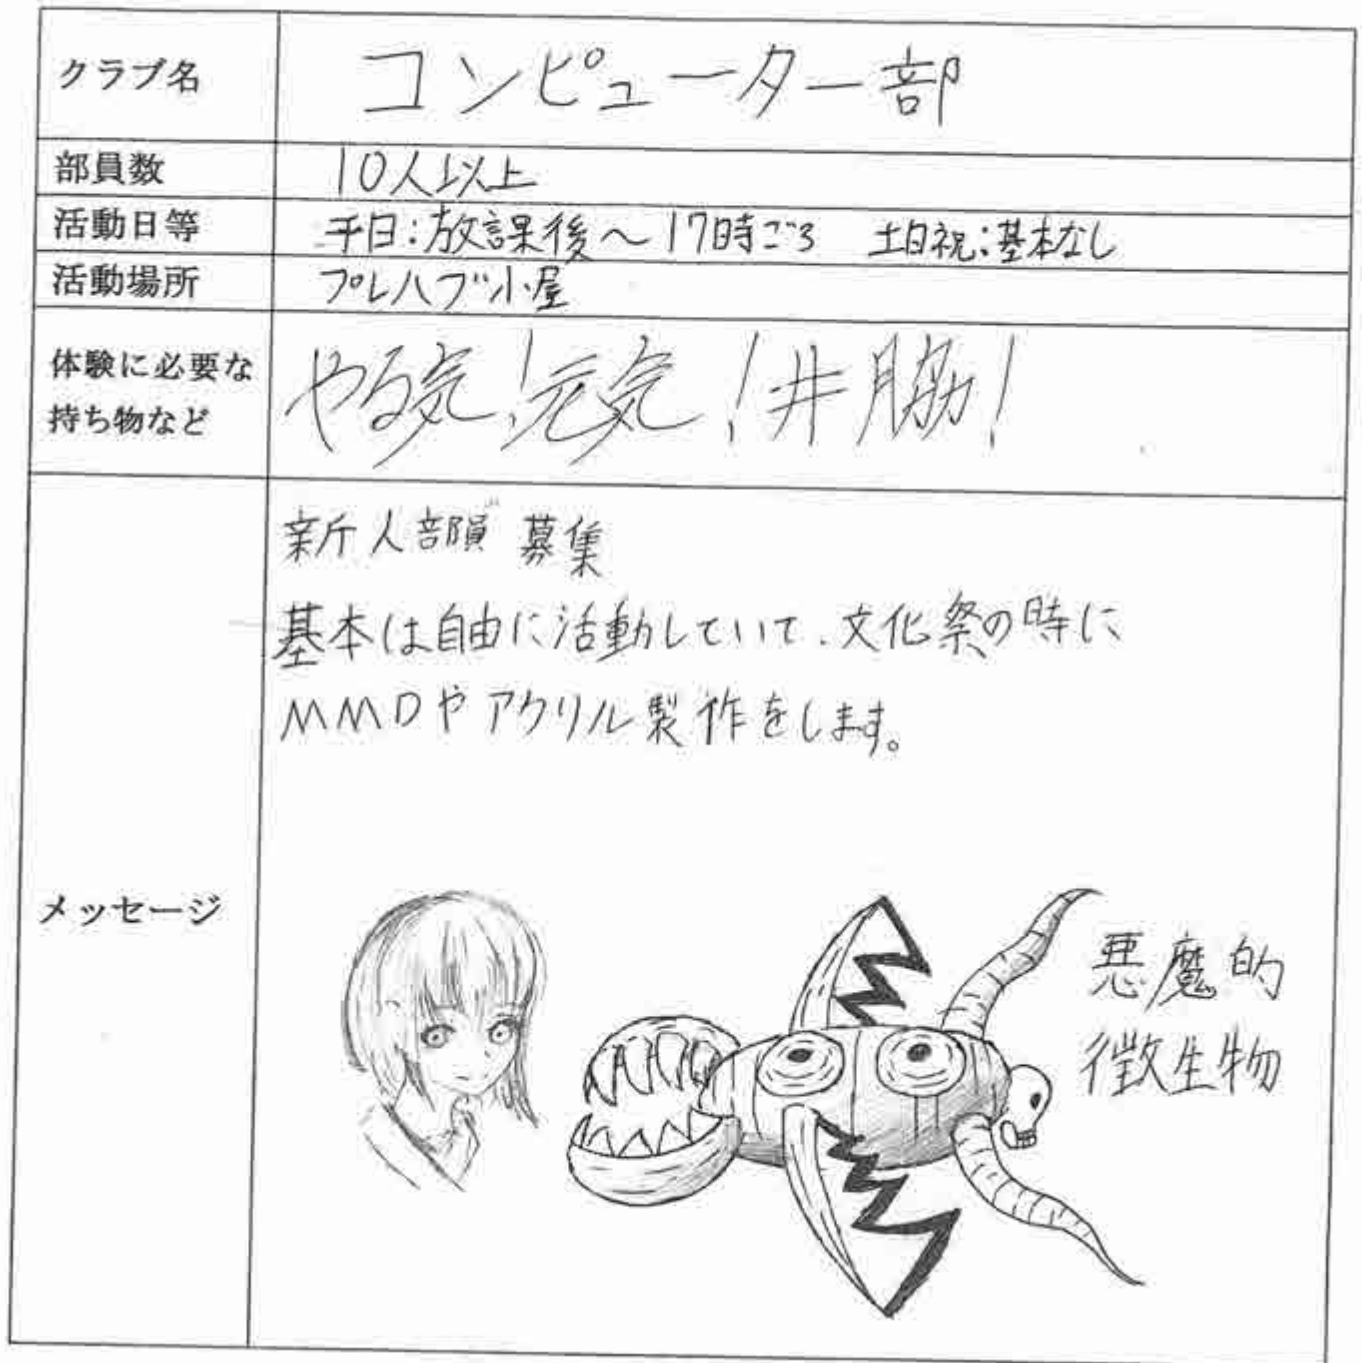 クラブ名
コンピューター部
部員数
10人以上
活動日等
平日:放課後～17時ごろ 土日祝:基本なし
活動場所
プレハブ小屋
体験に必要な
持ち物など
やる気!元気!井脇!
メッセージ
新人部員募集
基本は自由に活動していて、文化祭の時に
MMDやアクリル製作をします。
悪魔的
微生物